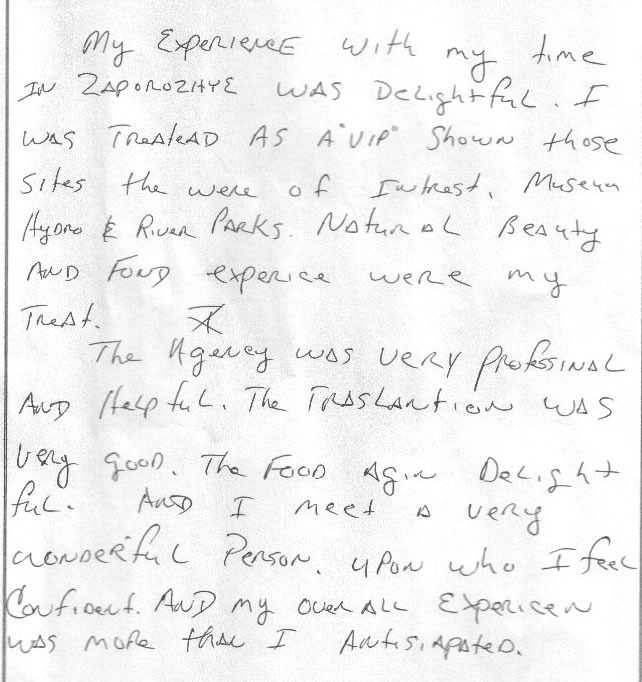 My Experience with my time
in Zaporozhye was Delightful. I
was Treatead as a "VIP" Shown those
Sites the were of Intrest, Museum
Hydro & River Parks. Natural Beauty
And Fond experice were my
Treat.
The Agency was very Profesinal
And Helpful. The Traslantion was
very good. The Food Agin Delight
ful. And I meet a very
wonderful Person. upon who I feel
Confident. And my over All Expericen
was more than I Antisiapated.